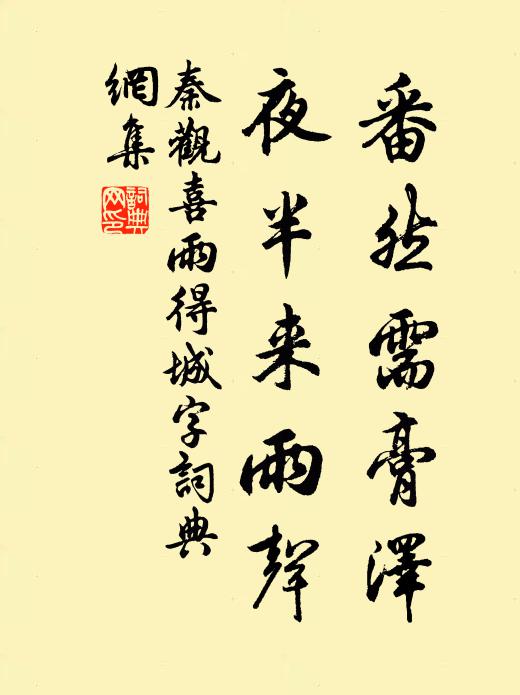 番然需膏澤
夜半来雨聲
秦觀喜雨得城字詞典
網集
詞典
网印